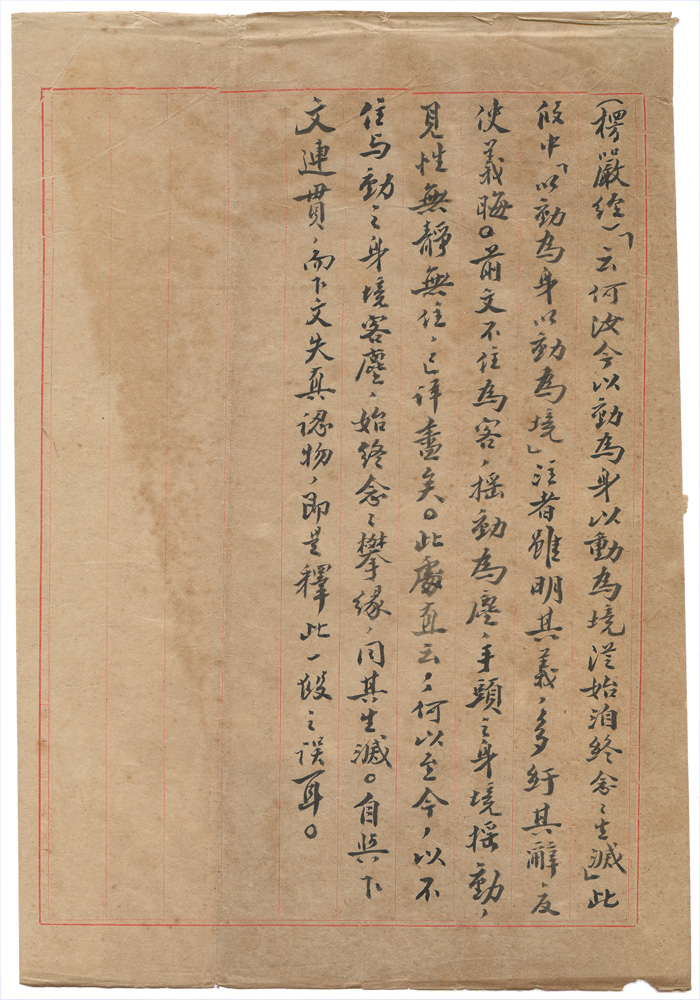 （楞嚴經）「云何汝今以動為身以動為境從始洎終念〻生滅」此
段中「以動為身以動為境」注者雖明其義，多紆其辭，反
使義晦。前文不住為客，搖動為塵，手頭之身境搖動，
見性無靜無住，已詳盡矣。此處直云，何以至今，以不
住与動之身境客塵，始終念〻攀緣，同其生滅。自與下
文連貫，而下文失真認物，即是釋此一段之誤耳。